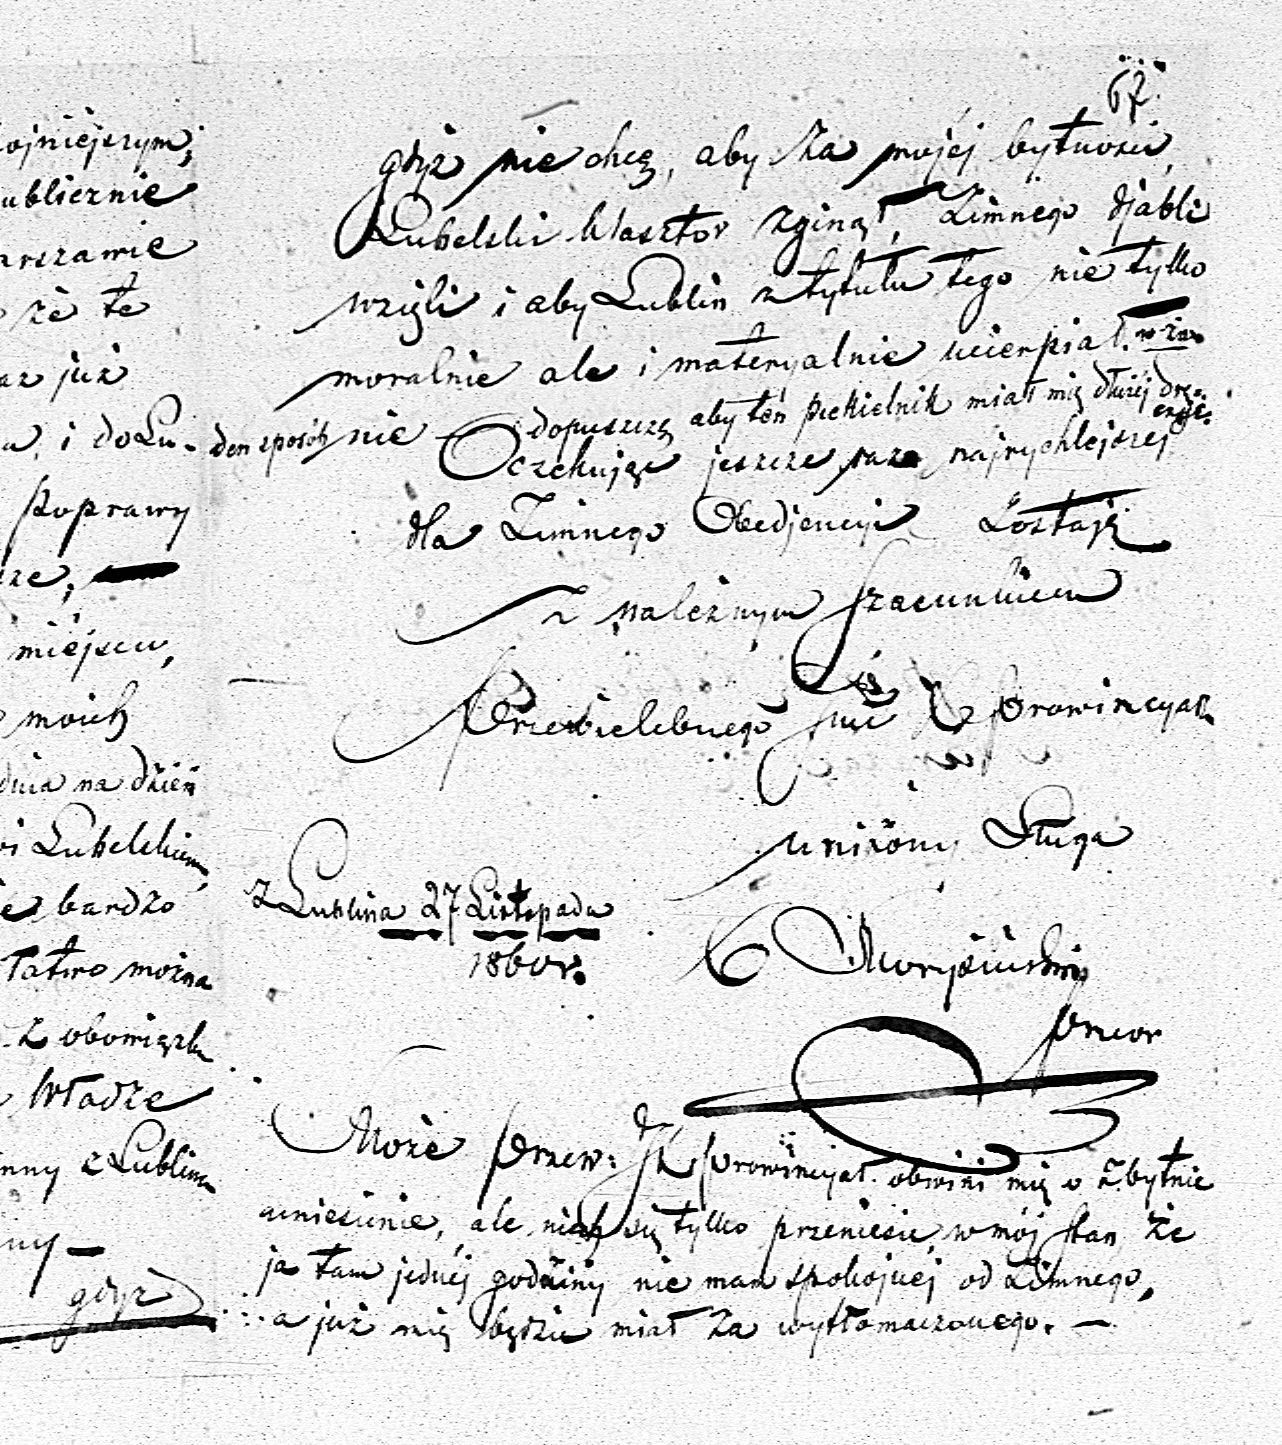 ojniejszym;
ublicznie
arszawie
że te
az już
i do Lu-
Poprawy
miéjscu,
moich
dnia na dzień
Lubelskiem,
bardzo
Łatwo można
z obowiązku
Władze
inny z Lublina
gdyż
67.
gdyż nie chcę, aby za mojéj bytności,
Lubelski klasztor zginął, Zimnego djabli
wzięli i aby Lublin z tytułu tego nie tylko
moralnie ale i materyalnie ucierpiał. w ża-
den sposób nie dopuszczę aby ten piekielnik miał mię dłużéj drę-
czyć.
Oczekując jeszcze raz najrychlejszej
dla Zimnego Obedjencyi Zostaję
z należnym szacunkiem
Przewielebnego Prowincyał
uniżony Sługa
z Lublina 27 Listopada
1860 r.
Przeor
Może Przew: Prowincyał obwini mię o zbytnie
uniesienie, ale niech się tylko przeniesie w mój stan, że
ja tam jednéj godziny nie mam spokojnej od Zimnego,
a już mię będzie miał za wytłomaczonego. —